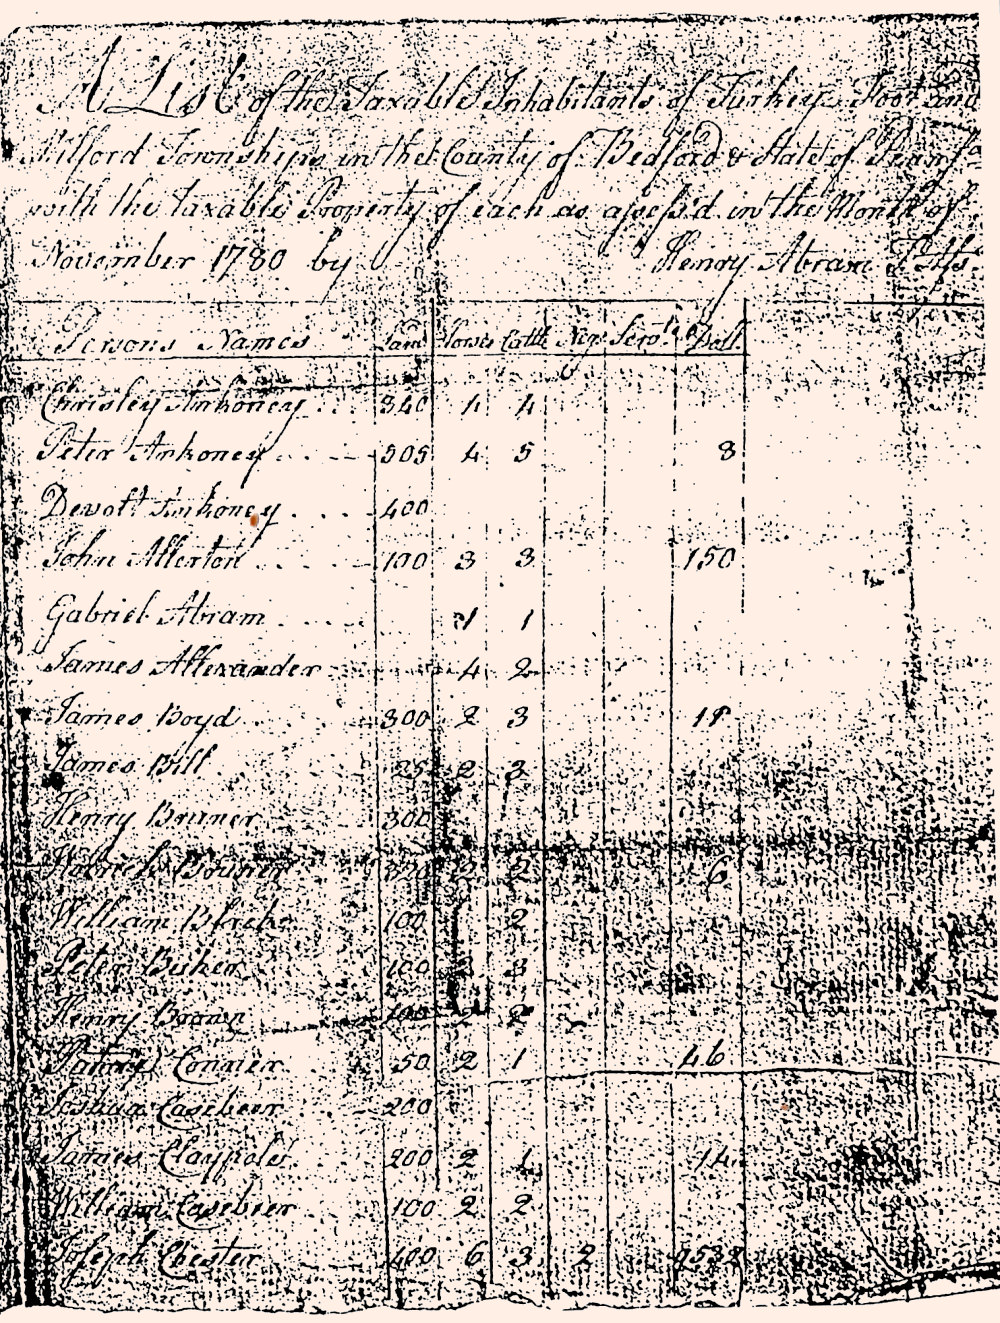 A List of the Taxable Inhabitants of Turkey Foot and
Milford Townships in the County of Bedford & State of
with the taxable Property of each as assess'd in the Month of
November 1780 by Henry Abram
Persons Names Land Horses Cattle Neg. Serv.ts Doll.
Chrisley Ankoney 340 4 4
Peter Ankoney 505 4 5 8
Devolt Ankoney 400
John Allerton 100 3 3 150
Gabriel Abram 1 1
James Allexander 4 2
James Boyd 300 2 3 18
James Bill 25 2 3
Henry Bruner 300
2 2 6
William 100 2
Peter Buker 100 3
Henry Brown 100 2 2
Connier 50 2 1 46
Joshua Casebeer 200
James Claypole 200 2 1 14
William Casebeer 100 2 2
Joseph Chester 400 6 3 2 9532